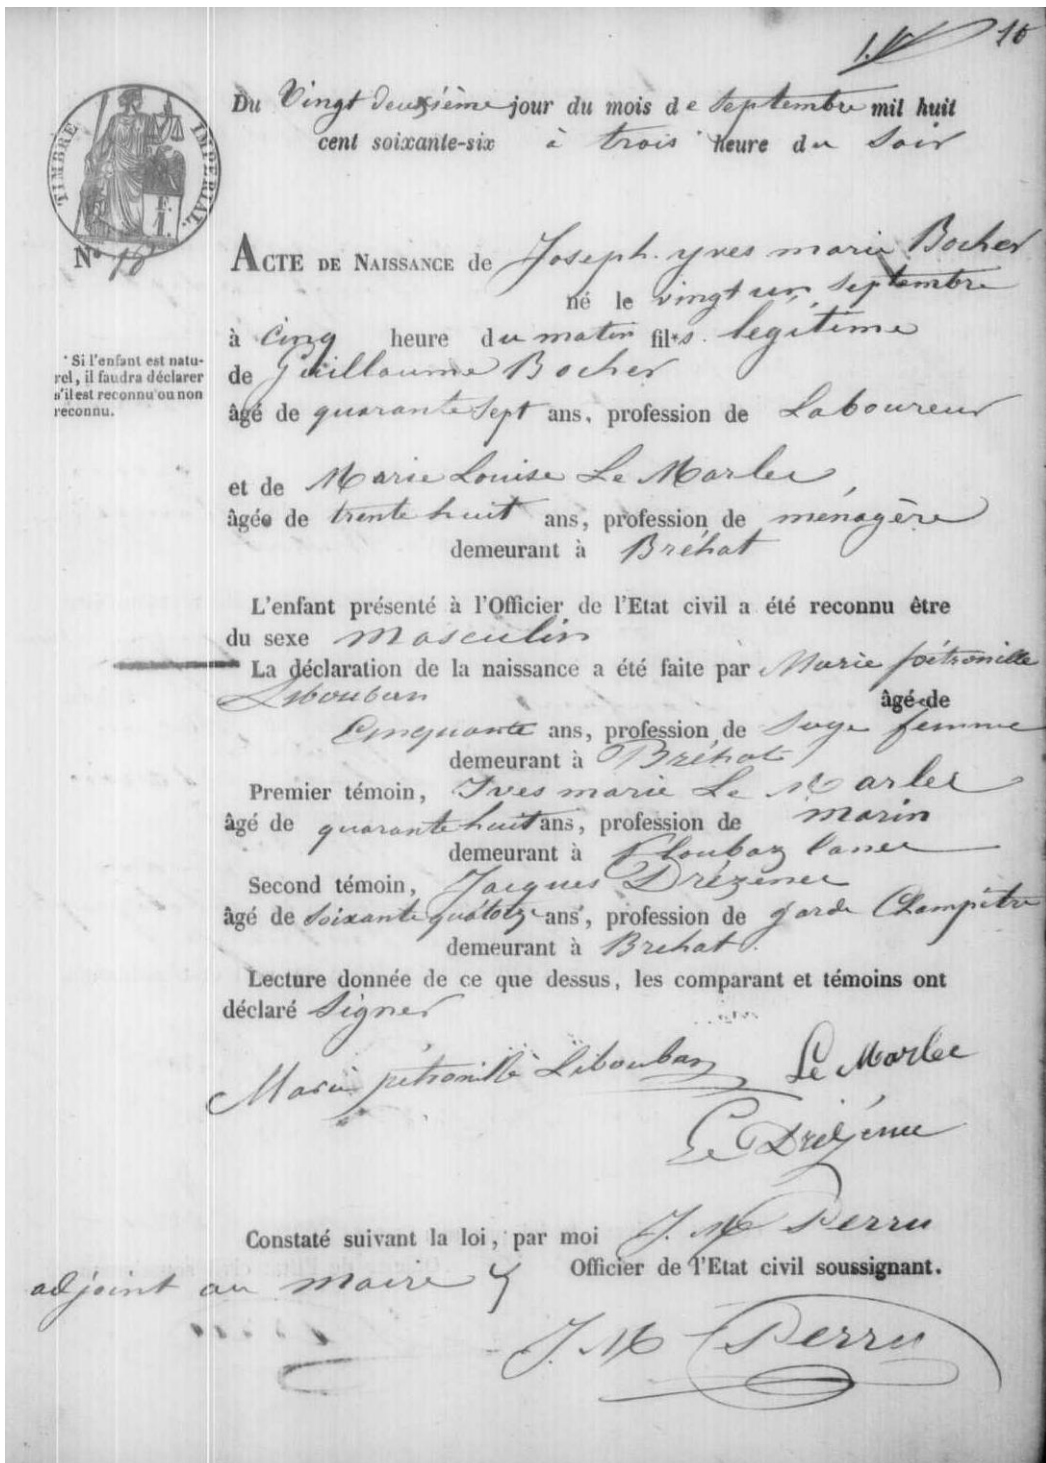 10
Du Vingt deuxième jour du mois de Septembre mil huit
cent soixante-six à trois heure du Soir
TIMBRE IMPÉRIAL.
N° 18
ACTE DE NAISSANCE de Joseph yves marie Bocher
né le vingt un Septembre
à cinq heure du matin fils légitime
* Si l'enfant est natu-
rel, il faudra déclarer
s'il est reconnu ou non
reconnu.
de Guillaume Bocher
âgé de quarante Sept ans, profession de Laboureur
et de Marie Louise Le Marlec
âgée de trente huit ans, profession de ménagère
demeurant à Bréhat
L'enfant présenté à l'Officier de l'Etat civil a été reconnu être
du sexe masculin
La déclaration de la naissance a été faite par Marie pétronille
Libouban âgé de
Cinquante ans, profession de Sage femme
demeurant à Bréhat
Premier témoin, Yves marie Le Marlec
âgé de quarante huit ans, profession de marin
demeurant à Ploubazlanec
Second témoin, Jacques Drézenec
âgé de Soixante quatorze ans, profession de garde Champêtre
demeurant à Brehat
Lecture donnée de ce que dessus, les comparant et témoins ont
déclaré Signer
Marie pétronille Libouban Le Marlec
Le Drézenec
Constaté suivant la loi, par moi J. M Perru
Officier de l'Etat civil soussignant.
adjoint au maire
J. M Perru